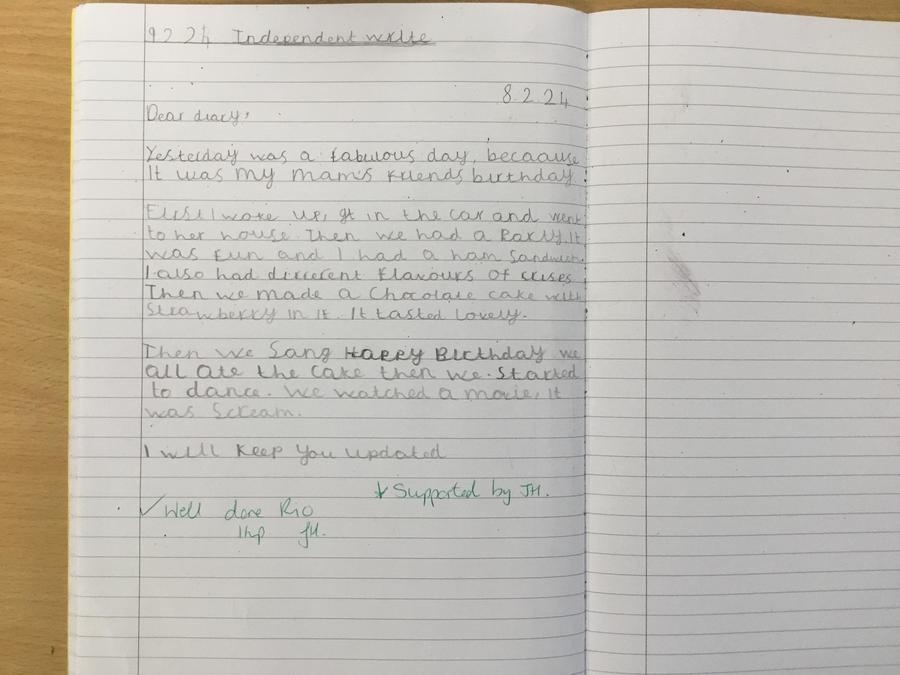 9.2.24 Independent write
8.2.24
Dear diary,
Yesterday was a fabulous day, becaause
it was my mam's friends birthday.
First I woke up, gt in the car and went
to her house. Then we had a Party. It
was fun and I had a ham Sandwich.
I also had different flavours of crisps.
Then we made a Chocolate cake with
Strawberry in it. It tasted lovely.
Then we Sang Happy Birthday we
all ate the cake then we. Started
to dance. We watched a movie, it
was Scream.
I will keep you updated
↓ Supported by JH.
✓ Well done Rio
1hp JH.